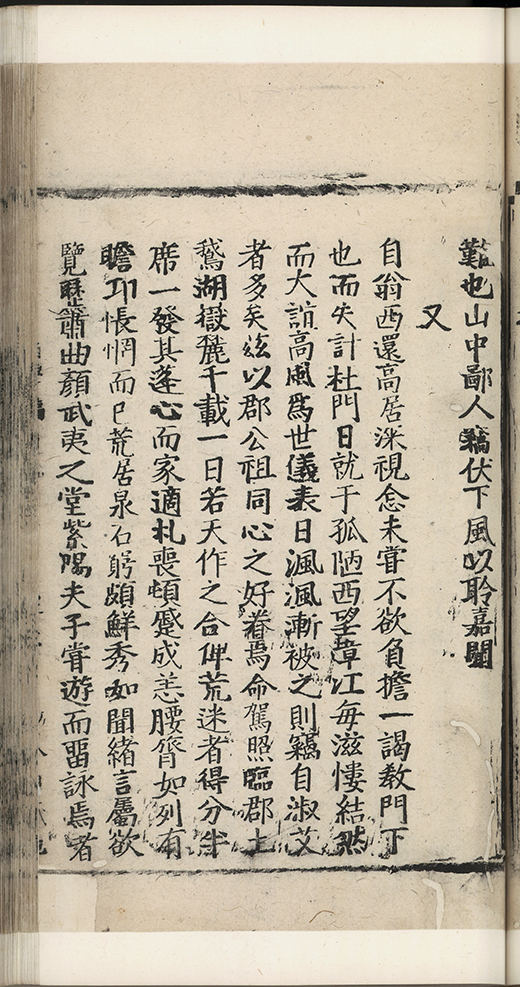 艱也山中鄙人竊伏下風以聆嘉聞
又
自翁西還高居深視念未甞不欲負擔一謁教門下
也而失計杜門日就于孤陋西望章江每滋悽結然
而大誼高風為世儀表日渢渢漸被之則竊自淑艾
者多矣茲以郡公祖同心之好眷焉命駕照臨郡土
鵞湖嶽麓千載一日若天作之合俾荒迷者得分半
席一發其蓬心而家適札喪頓蹙成恙腰膂如列有
瞻卭悵惘而已荒居泉石窮頗鮮秀如聞緒言屬欲
覽歷簫曲顏武夷之堂紫陽夫子甞遊而畱詠焉者